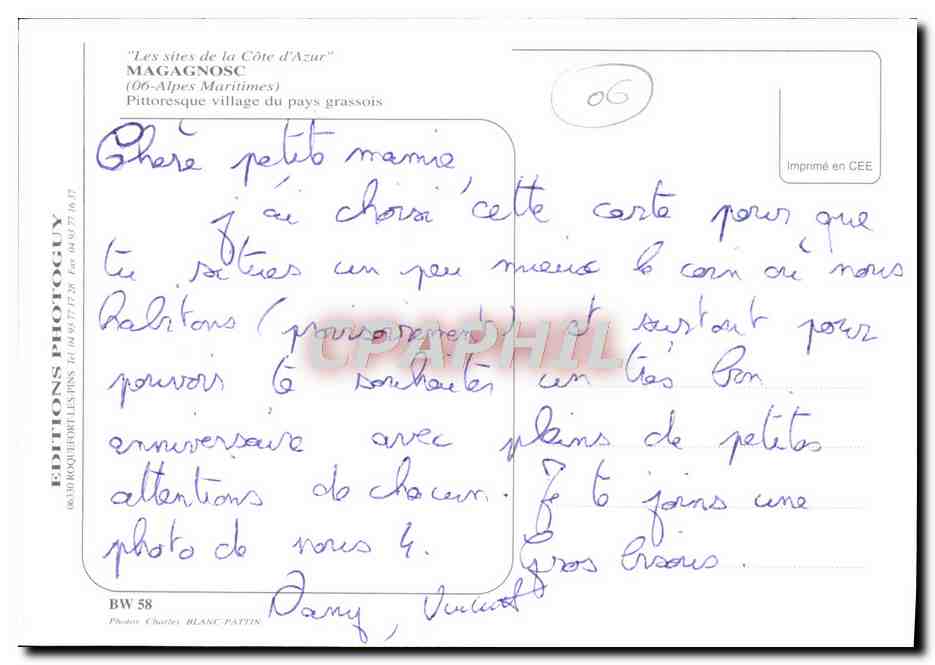 "Les sites de la Côte d'Azur"
MAGAGNOSC
(06-Alpes Maritimes)
Pittoresque village du pays grassois
06
Imprimé en CEE
EDITIONS PHOTOGUY
06330 ROQUEFORT-LES-PINS Tel 04 93 77 17 28 Fax 04 93 77 16 37
Chère petite mamie,
j'ai choisi cette carte pour que
tu situes un peu mieux le coin où nous
habitons (provisoirement) et surtout pour
pouvoir te souhaiter un très bon
anniversaire avec pleins de petites
attentions de chacun. Je te joins une
photo de nous 4. Gros bisous.
Dany, Vincent
CPAPHIL
BW 58
Photos Charles BLANC-PATTIN